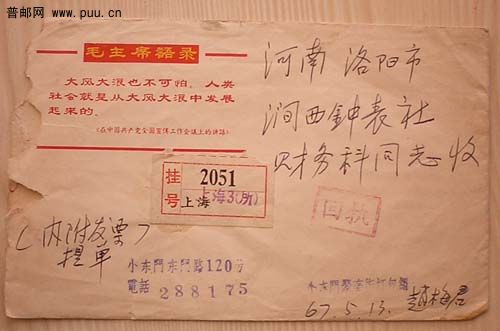 普邮网
www.puu.cn
毛主席語录
大风大浪也不可怕。人类
社会就是从大风大浪中发展
起来的。
《在中国共产党全国宣传工作会议上的讲话》
河南洛阳市
涧西鈡表社
财务科同志收
挂号
2051
上海
上海3(所)
回执
(内附发票)
提单
小东門东門路120号
電話 288175
小东門
67.5.13.